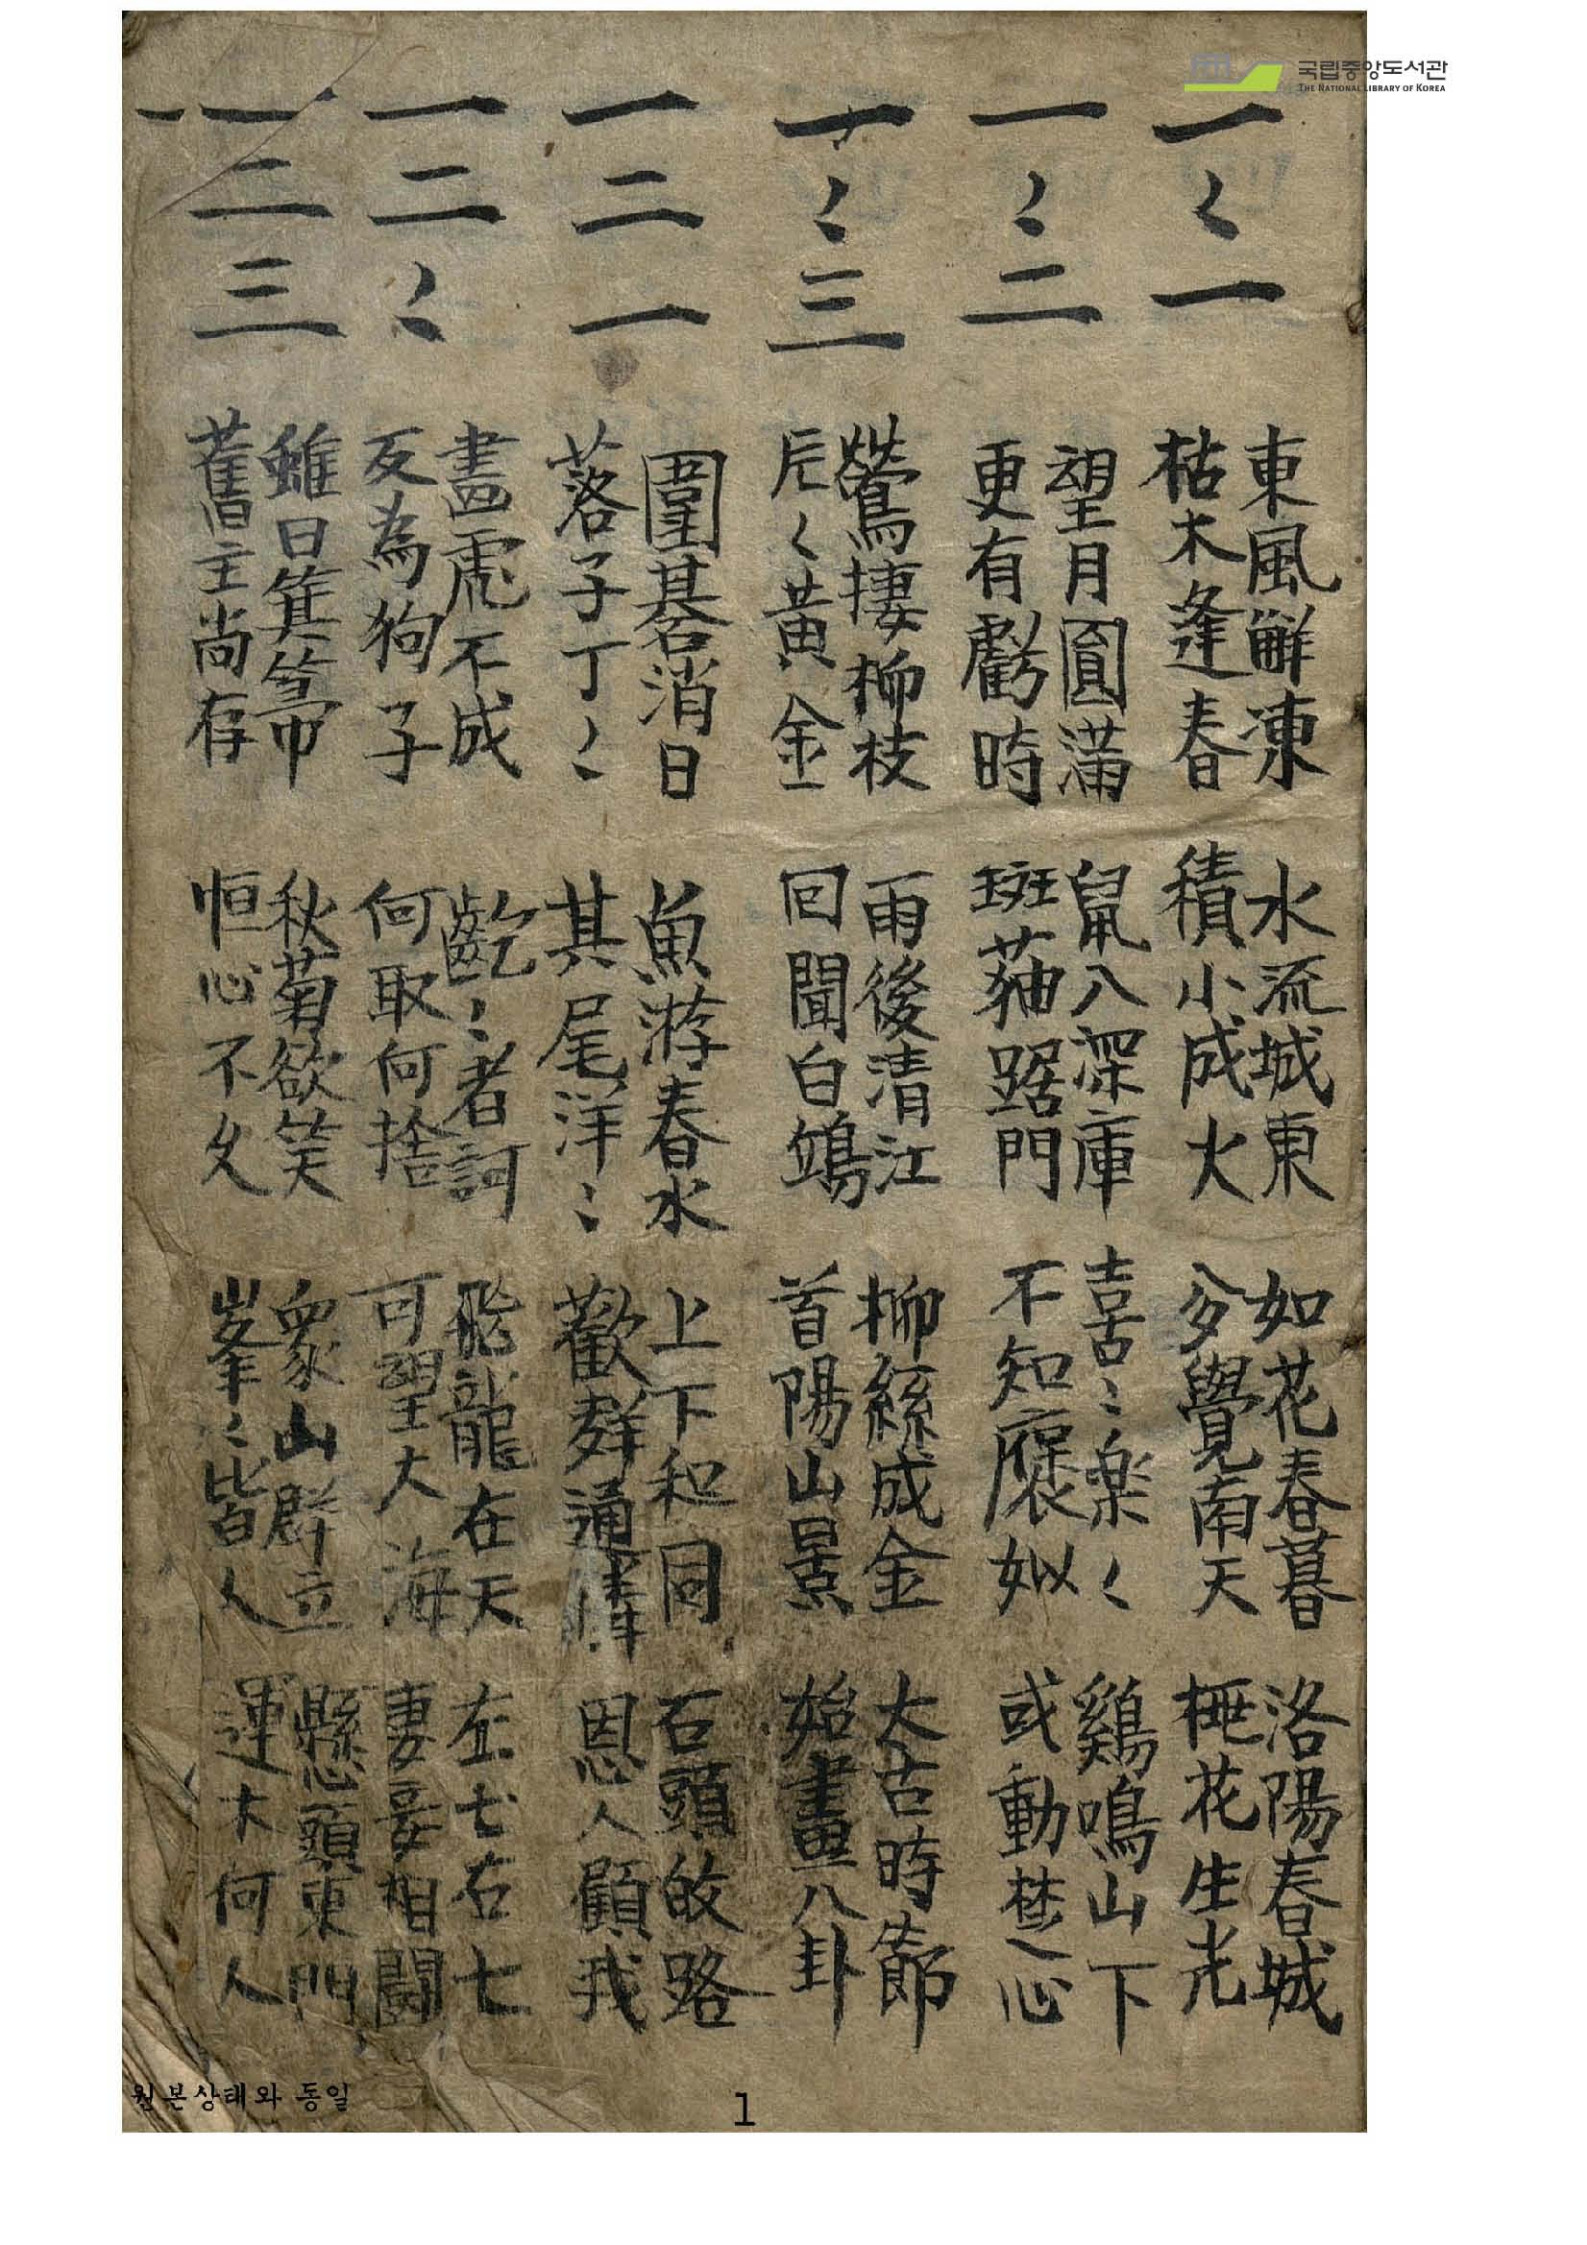 국립중앙도서관
THE NATIONAL LIBRARY OF KOREA
一〻一
東風解凍 水流城東 如花春暮 洛陽春城
枯木逢春 積小成大 多覺南天 梅花生光
一〻二
望月圓滿 鼠入深庫 喜〻樂〻 鷄鳴山下
更有虧時 斑猫踞門 不知 如 或動楚心
一〻三
鶯捿柳枝 雨後清江 柳絲成金 大古時節
片〻黃金 回聞白鴻 首陽山景 始畫八卦
一二一
圍碁消日 魚游春水 上下和同 石頭 路
落子丁〻 其尾洋〻 歡群通情 恩人顧我
一二〻
畫虎不成 齕〻者訶 飛龍在天 左七右七
反為狗子 何取何捨 可望大海 妻妾相鬪
一二三
雖曰箕箒 秋菊欲笑 衆山群立 懸頭東門
舊主尙存 恒心不久 峯〻皆人 運木何人
一
원본상태와 동일
1